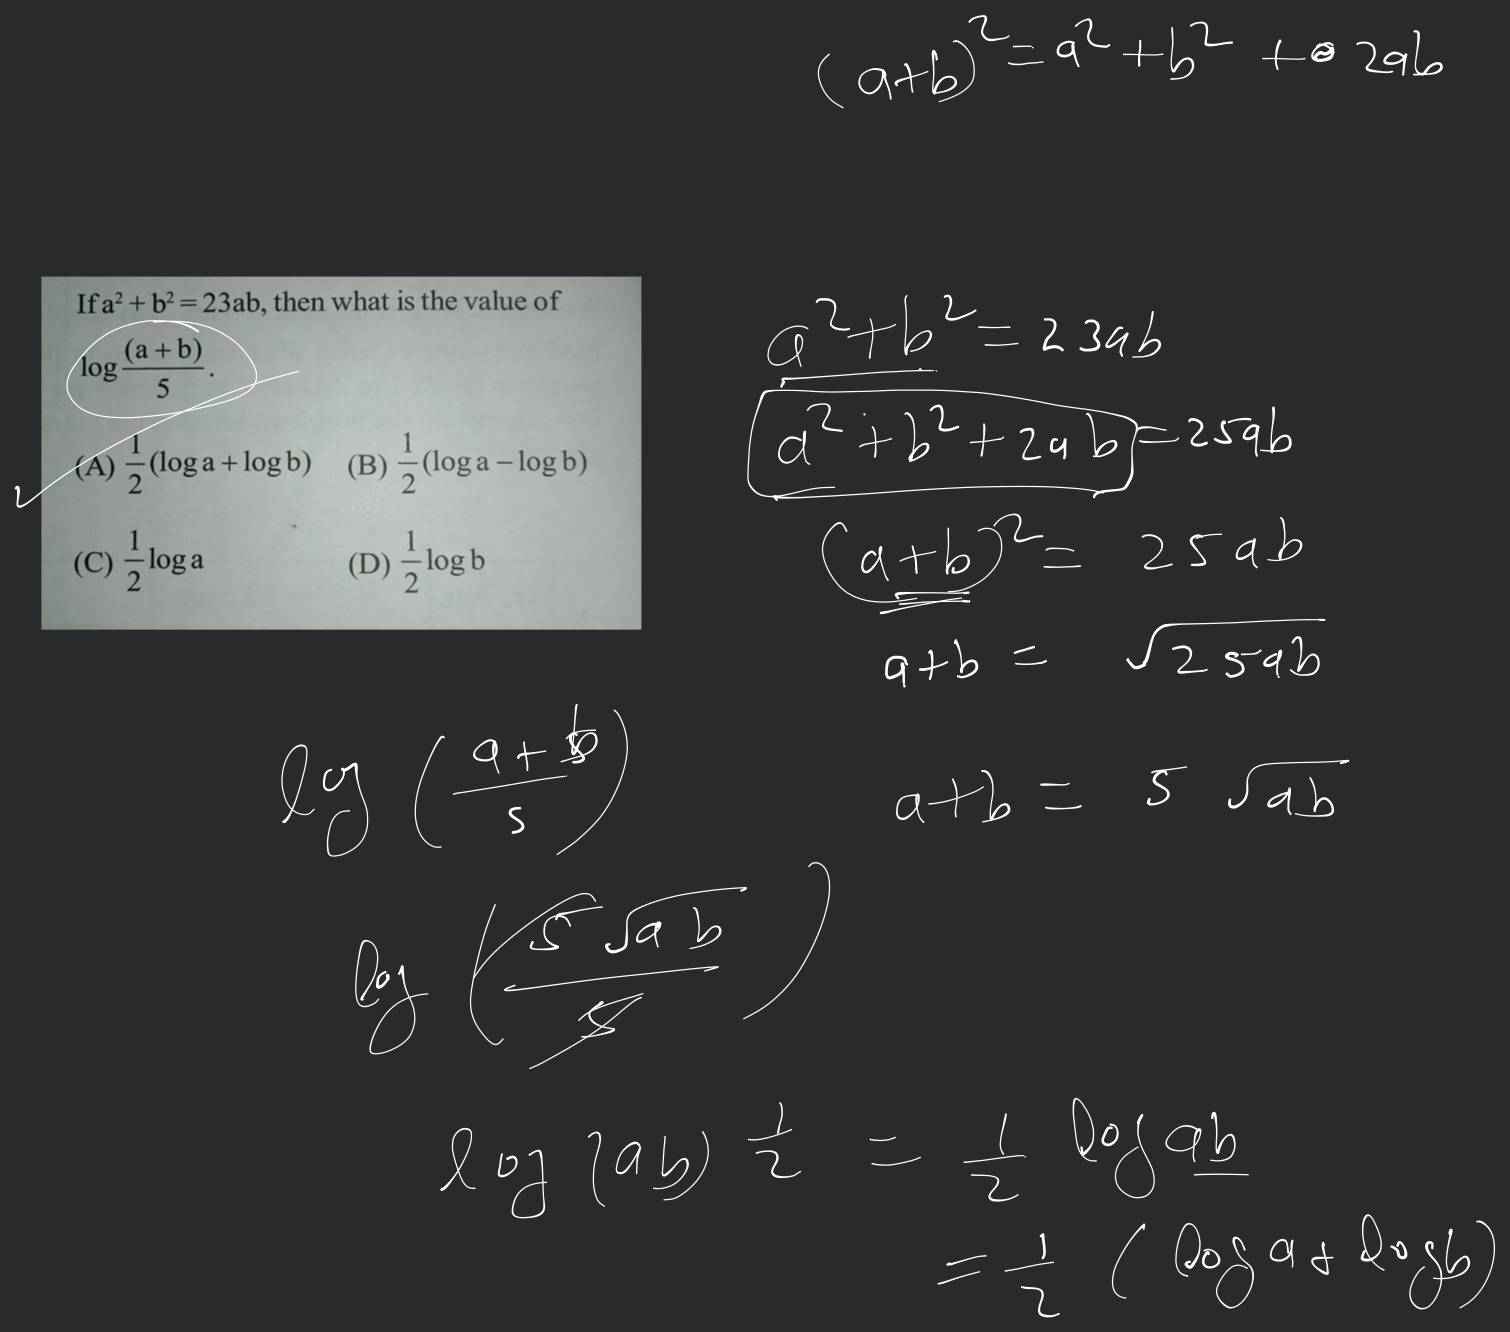 (a+b)² = a² + b² + 2ab
If a² + b² = 23ab, then what is the value of
log (a + b)/5 .
(A) 1/2 (log a + log b) (B) 1/2 (log a – log b)
(C) 1/2 log a (D) 1/2 log b
a² + b² = 23ab
a² + b² + 2ab = 25ab
(a+b)² = 25ab
a+b = √25ab
a+b = 5 √ab
log ( a+b / 5 )
log ( 5 √ab / 5 )
log (ab) 1/2 = 1/2 log ab
= 1/2 ( log a + log b)